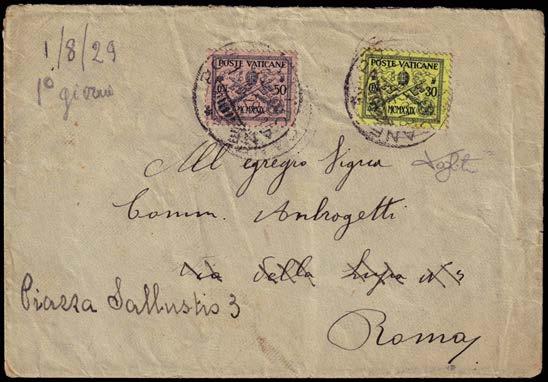 1/8/29
1º giorno
POSTE VATICANE
50
MCMXXIX
POSTE VATICANE
30
MCMXXIX
All egregio Signor
Comm. Androgetti
via della Lupa nº
Piazza Sallustio 3
Roma